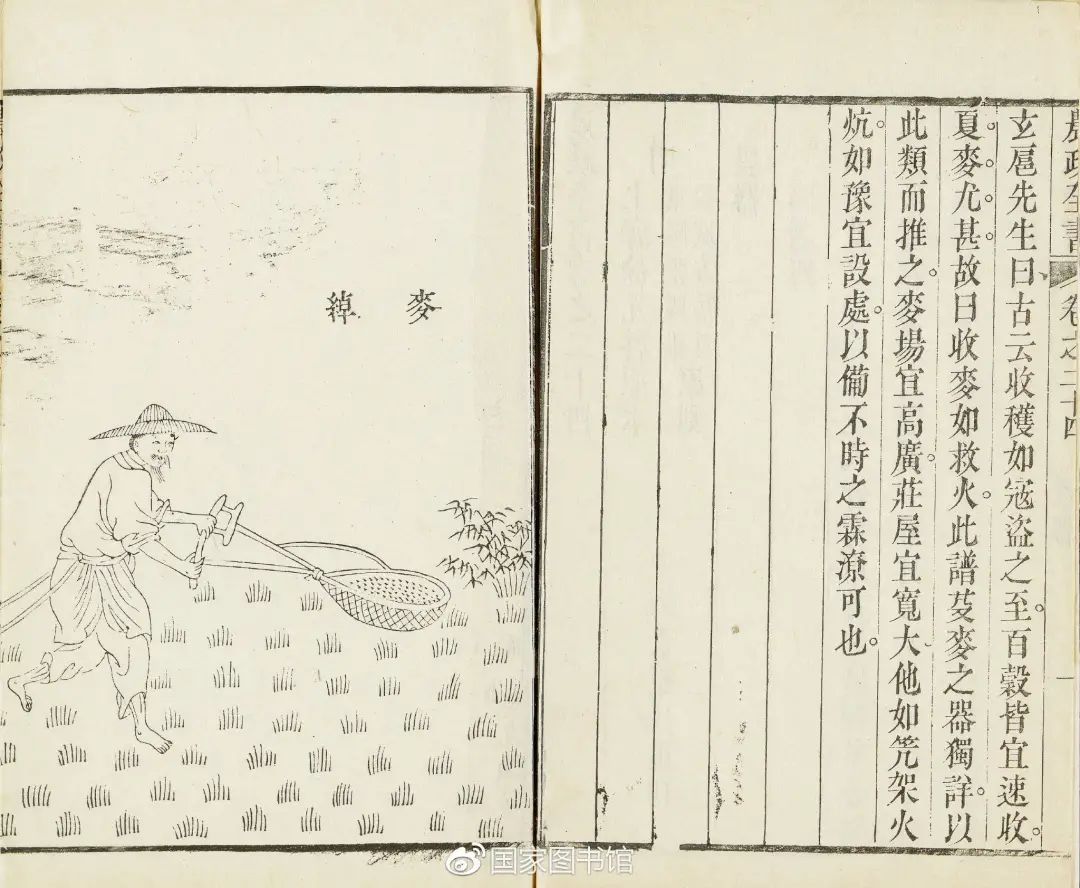 農政全書 卷之二十四 一
玄扈先生曰古云收穫如寇盜之至。百穀皆宜速收。
夏麥尤甚。故曰收麥如救火。此譜芟麥之器獨詳。以
此類而推之。麥場宜高廣。莊屋宜寬大他如笐架火
炕如豫宜設處。以備不時之霖潦可也。
麥綽
国家图书馆